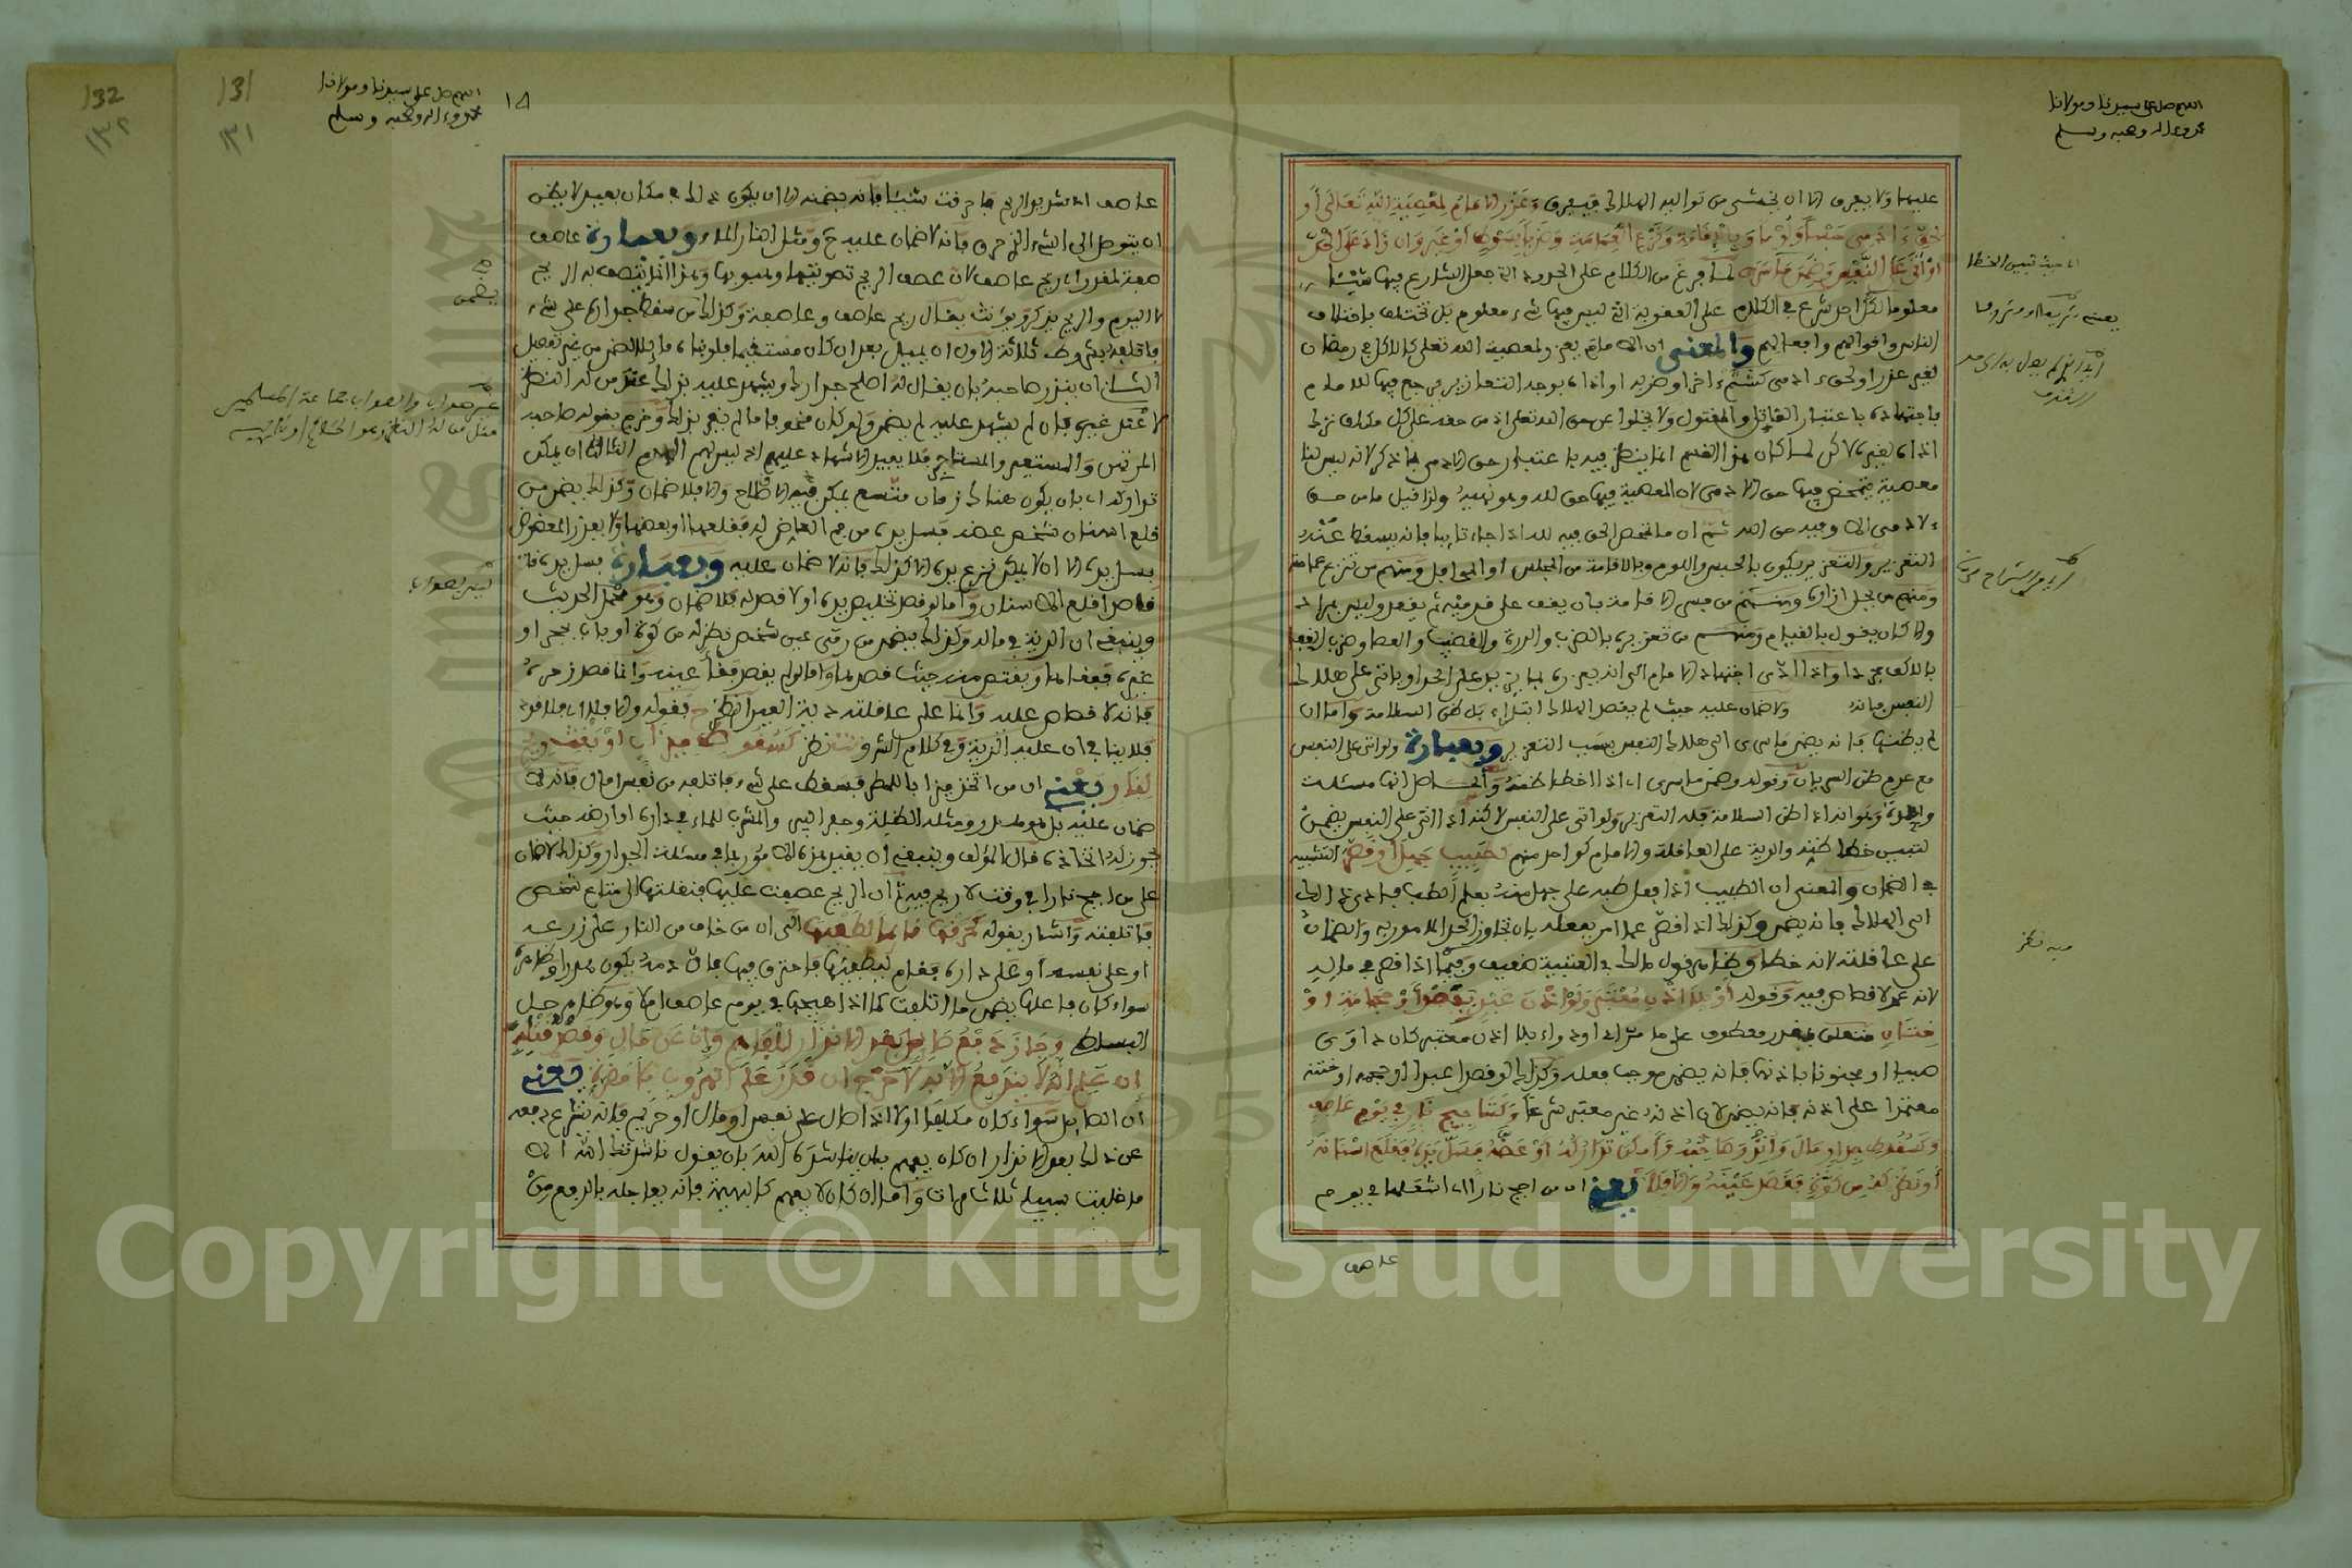 اللهم صل على سيدنا ومولانا
محمد وءاله وصحبه وسلم
عليهما ولا يغرق الا ان يخشى من توالية الهلاك فيفرق وعزر الامام لمعصية الله تعالى أو
لحق ءادمي حبسا ولوما وبالإقامة ونزع العمامة وضرب بسوط أو غيره وان زاد على الحد
أو أتى على النفس وضمن ما سرى لما فرغ من الكلام على الحدود التي جعل الشارع فيها شيئا
معلوما لكل احد شرع في الكلام على العقوبة التي ليس فيها شيء معلوم بل تختلف باختلاف
الناس واقوالهم وافعالهم والمعنى ان الامام يعزر لمعصية الله تعلى كالاكل في رمضان
لغير عذر او لحق ءادمي كشتم ءاخر او ضربه او اذاه بوجه التعازير يرجع فيها للامام
باجتهاده باعتبار القائل والمقول ولا يخلوا عن حق الله تعلى اذ من حقه على كل مكلف ترك
اذاه لغيره لاكن لما كان هذا القسم انما ينظر فيه باعتبار حق الادمي ذكر لانه ليس لنا
معصية يتمحض فيها حق الادمي لان المعصية فيها حق لله وهو نهيه ولذا قيل ما من حق
ءلادمي الا وفيه حق الله ثم ان ما تمحض الحق فيه لله اذا جاء تايبا فانه يسقط عنه
التعزير والتعزير يكون بالحبس واللوم وبالاقامة من المجلس او المحافل ومنهم من تنزع عمامته
ومنهم من يحل ازاره وليس مراده الاقامة بان يقف على قدميه ثم يقعد وليس مراد
والا كان يقول بالقيام ومنهم من تعزيره بالضرب والدرة والقضيب والعصا وضرب القفا
بالاكف مجردا واذا ادى اجتهاد الامام الى انه يعزره بما يزيد على الحد او ياتي على هلاك
النفس فانه ولا ضمان عليه حيث لم يقصد الهلاك ابتداء بل ظن السلامة واما ان
لم يظنها فانه يضمن ما سرى الى هلاك النفس بسبب التعزير وبعبارة ولو اتى على النفس
مع عدم ظن السريان وقوله وضمن ما سرى اي اذا اخطا ظنه والحاصل انها مسئلة
واحدة وهو انه اذا ظن السلامة فله التعزير ولو اتى على النفس لاكنه اذا اتى على النفس يضمن
لتبين خطا ظنه والدية على العاقلة والامام كواحد منهم كطبيب جهل أو قصر التشبيه
في الضمان والمعنى ان الطبيب اذا فعل طبه على جهل منه بعلم الطب فادى ذلك
الى الهلاك فانه يضمن وكذلك اذا قصر عما امر بفعله بان تجاوز الحد المامور به والضمان
على عاقلته لانه خطا وظاهر قول مالك في العتبية ضعيف وفيما اذا قصر في ماله
لانه عمد لا قصاص فيه وقوله أو بلا إذن معتبر ولو إذن عبد بفصد أو حجامة أو
ختان متعلق بمقدر معطوف على ما مر اي او داوى بلا اذن معتبر كان داوى
صبيا او مجنونا باذنهما فانه يضمن موجب فعله وكذلك لو فصد عبدا او حجمه او ختنه
معتمدا على اذنه فانه يضمن لان اذنه غير معتبر شرعا وكتأجيج نار في يوم عاصف
وكسقوط جدار مال وأنذر صاحبه وأمكن تداركه أو عضه فسل يده فقلع أسنانه
أو نظر له من كوة فقصد عينه وإلا فلا يعني ان من اجج نارا اي اشعلها في يوم
عاصف
فيه نظر
١٥
اللهم صل على سيدنا ومولانا
محمد وءاله وصحبه وسلم
131
١٣١
132
١٣٢
عاصف اي شديد الريح فاحرقت شيئا فانه يضمنه الا ان يكون ذلك في مكان بعيد لا يظن
ان يتوصل الى الشيء الذي حرق فانه لا ضمان عليه ح ومثل النار الماء وبعبارة عاصف
صفة لمقدر اي ريح عاصف لان عصف الريح تصويتها وهبوبها وهذا انما يتصف به الريح
لا اليوم والريح يذكر ويونث يقال ريح عاصف وعاصفة وكذلك من سقط جداره على شيء
فاتلفه بشروط ثلاثة الاول ان يميل بعد ان كان مستقيما فلو بناه مائلا لضمن من غير تفصيل
الثاني ان ينذر صاحبه بان يقال له اصلح جدارك ويشهد عليه بذلك عند من له النظر
لا عند غيره فان لم يشهد عليه لم يضمن ولو كان مخوفا ما لم يقر بذلك وخرج بقوله صاحبه
المرتهن والمستعير والمستاجر فلا يفيد الاشهاد عليهم اذ ليس لهم الهدم الثالث ان يمكن
تداركه اي بان يكون هناك زمان متسع يمكن فيه الاصلاح والا فلا ضمان وكذلك يضمن من
قلع اسنان شخص عضه فسل يده من فم العاض له فقلعها او بعضها ولا يعذر المعضوض
بسل يده الا ان لا يمكن نزع يده الا كذلك فانه لا ضمان عليه وبعبارة فسل يده
قاصدا قلع الاسنان واما لو قصد تخليص يده او لا قصد له فلا ضمان وهو محمل الحديث
وينبغي ان الدية في ماله وكذلك يضمن من رمى عين شخص نظر له من كوة او باب بحجر او
غيره ففقاها ويقتص منه حيث قصدها واما لو لم يقصد فقأ عينه وانما قصد زجره
فانه لا قصاص عليه وانما على عاقلته دية العين انظر فقوله والا فلا اي فلا قود
فلا ينافي ان عليه الدية وفي كلام الشرح نظر كسقوط ميزاب أو بغت ريح
لنار يعني ان من اتخذ ميزابا للمطر فسقط على شيء فاتلفه من نفس او مال فانه لا
ضمان عليه بل هو هدر ومثله الظلة وحفر البير والسرب للماء في داره او ارضه حيث
يجوز له اتخاذه قال المؤلف وينبغي ان يقيد هذا بما في مسئلة الجدار وكذلك لا ضمان
على من اجج نارا في وقت لا ريح فيه ثم ان الريح عصفت عليها فنقلتها الى متاع شخص
فاتلفته واشار بقوله كحرقها قائما لطفيها الى ان من خاف من النار على زرعه
او على نفسه او على داره فقام ليطفيها فاحترق فيها فان دمه يكون هدرا وظاهره
سواء كان فاعلها يضمن ما اتلفت كما اذا هيجها في يوم عاصف ام لا وهو ظاهر حل
البساطي وجاز دفع صائل بعد الإنذار للفاهم وإن عن مال وقصد قتله
إن علم أنه لا يندفع إلا به لا جرح إن قدر على الهروب بلا مضرة يعني
ان الصائل سواء كان مكلفا او لا اذا صال على نفس او مال او حريم فانه يشرع دفعه
عن ذلك بعد الانذار ان كان يفهم بان يناشده الله بان يقول ناشدتك الله الا
ما خليت سبيلي ثلاث مرات واما ان كان لا يفهم كالبهيمة فانه يعاجله بالدفع من